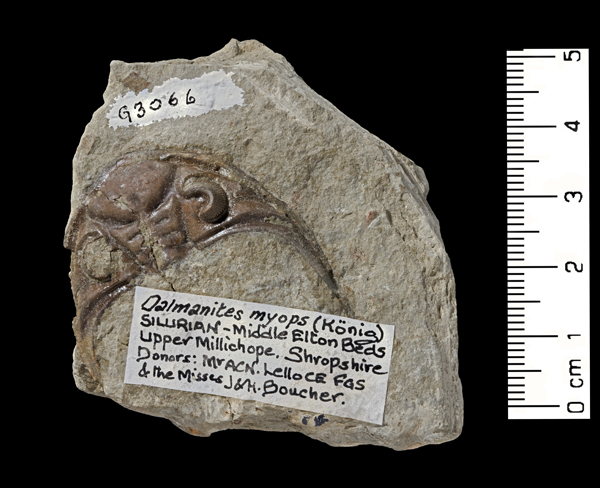 G3066
Dalmanites myops (König)
SILURIAN - Middle Elton Beds
Upper Millichope, Shropshire
Donors: Mr ACN. &
& the Misses J & H. Boucher.
5
4
3
2
1
0 cm